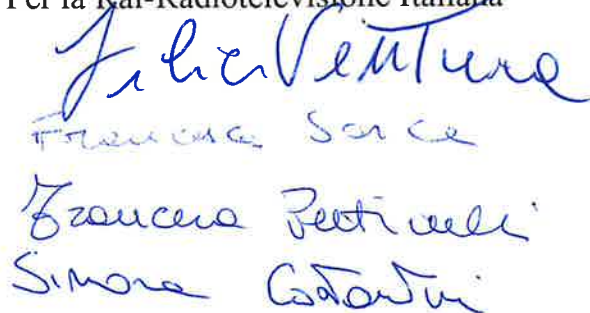 Per la Rai-Radiotelevisione Italiana
Felice Ventura
Francesca Sorce
Francesca
Simona Costantini